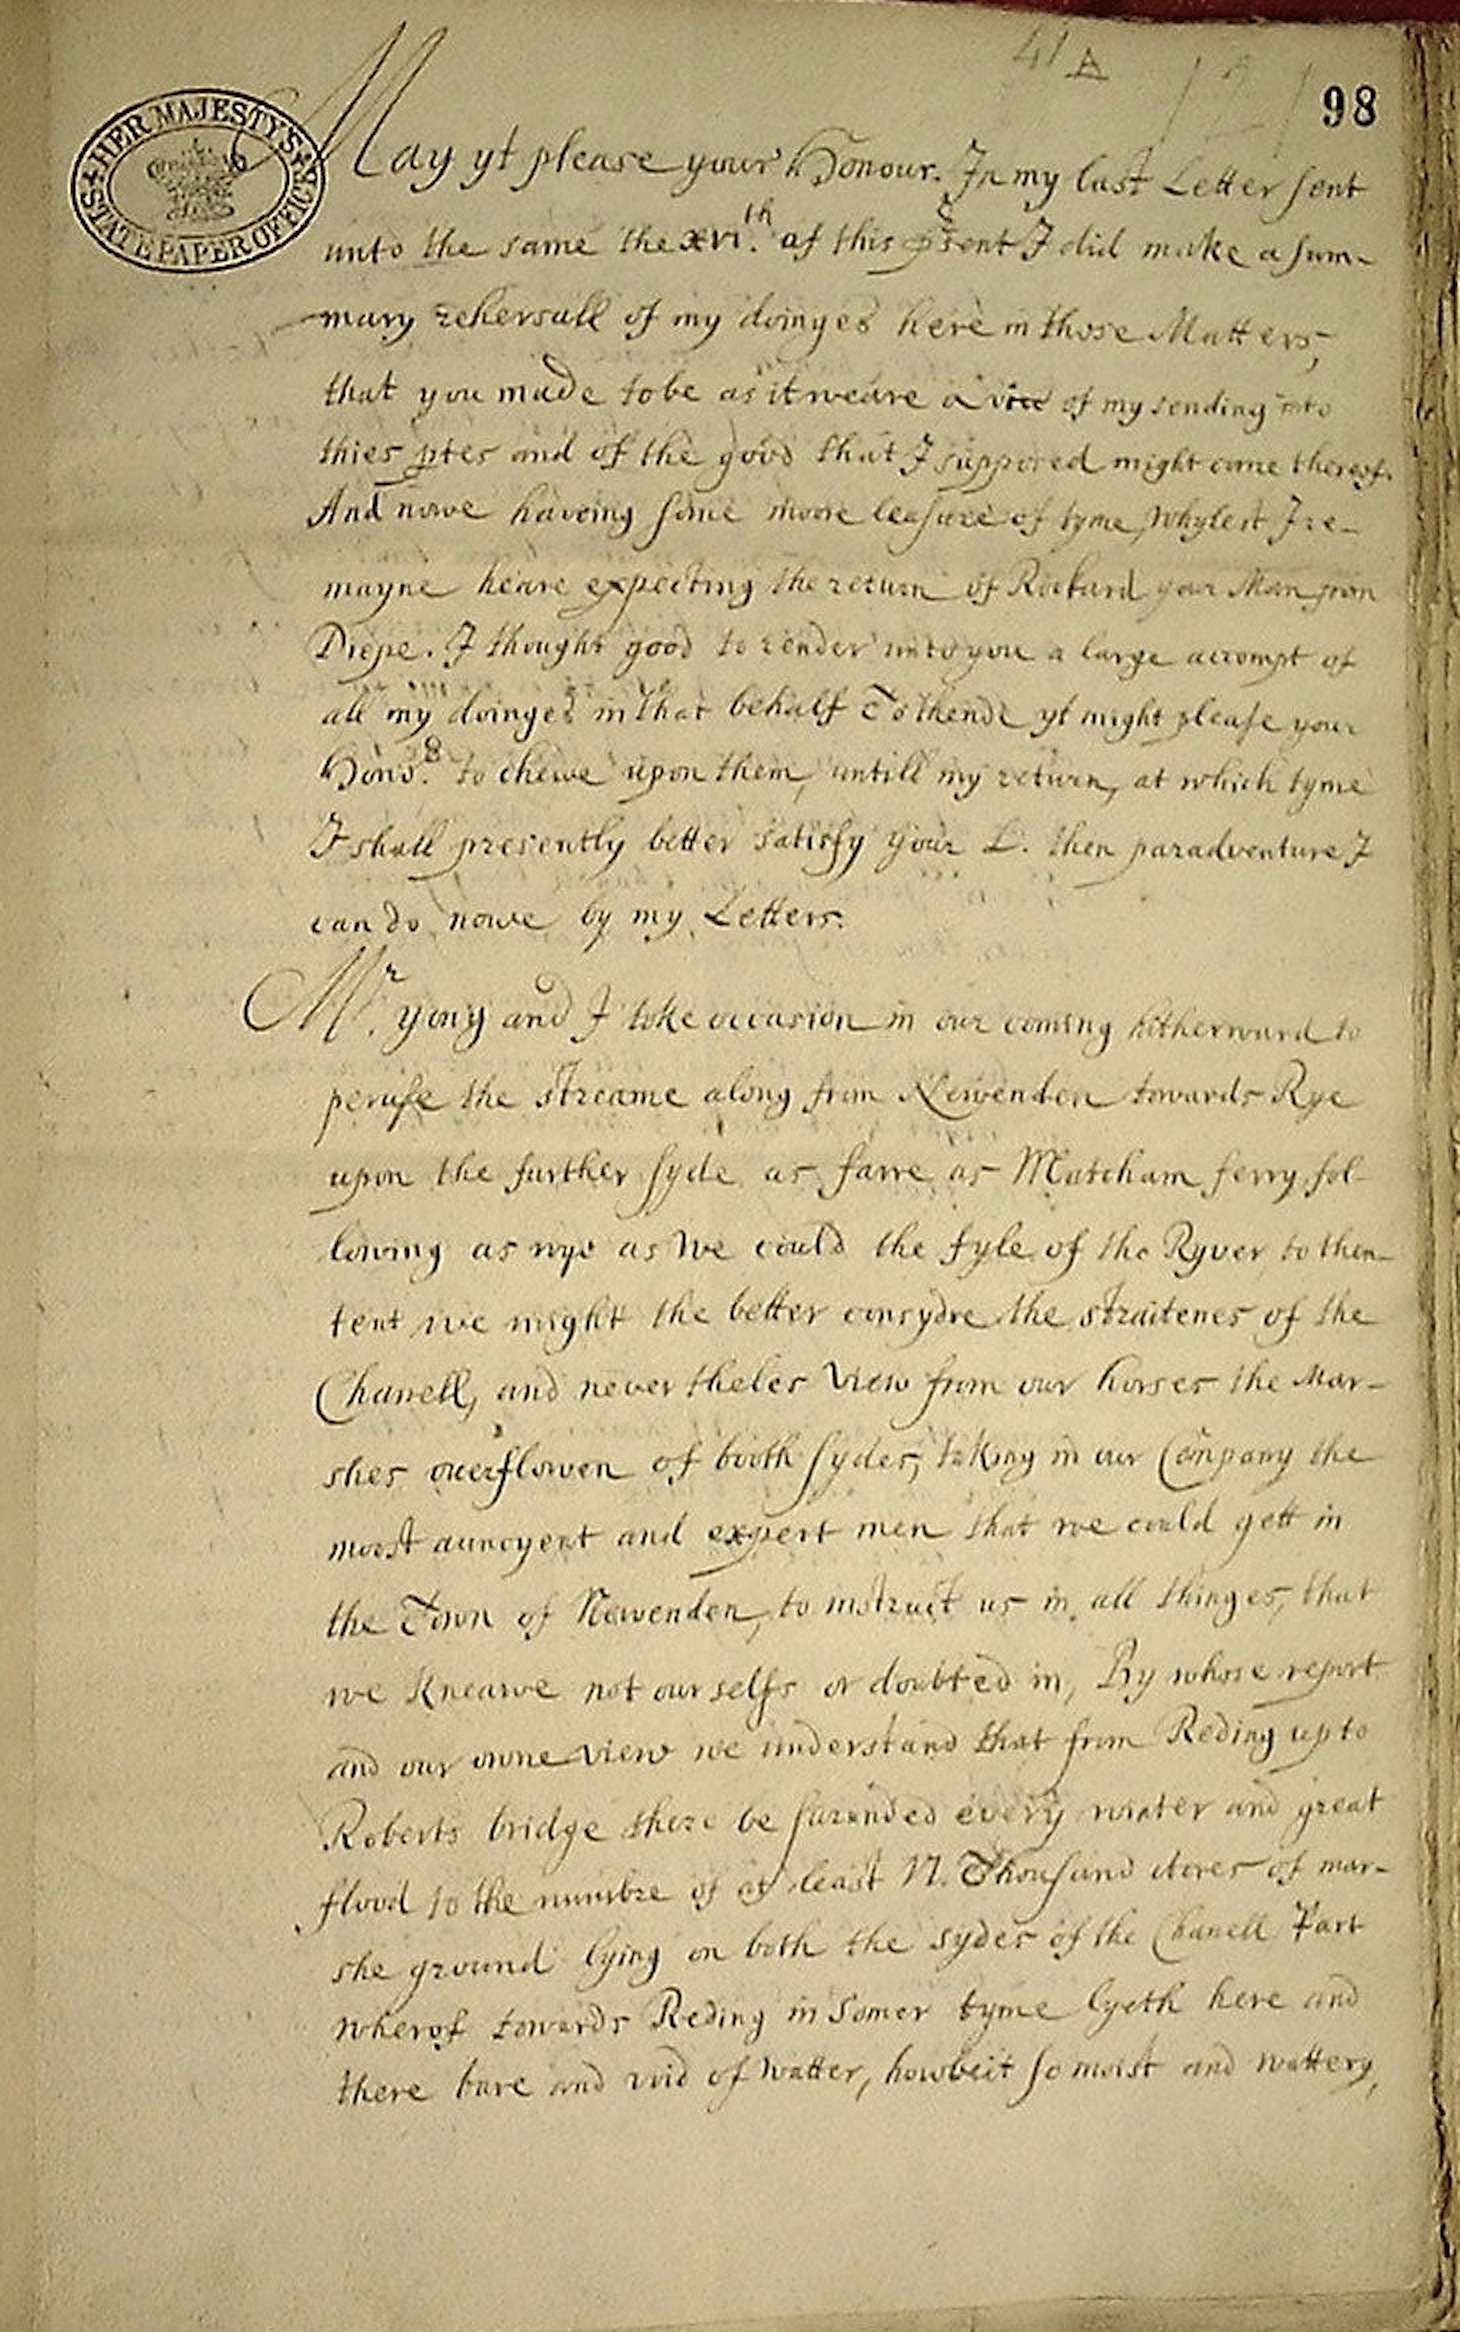 41 A
98
HER MAJESTY'S STATE PAPER OFFICE
May yt please your Honour. In my last Letter sent
unto the same the xvi.th of this p̄sent I did make a sum-
mary rehersall of my doinges here in those Matters,
that you made to be as it weare a of my sending into
thies ptes and of the good that I supposed might come thereof.
And nowe haveing some moore leasure of tyme, whylest I re-
mayne heare expecting the return of your Man from
Diepe. I thought good to render unto you a large accompt of
all my doinges in that behalf To thende yt might please your
Hono.r to chewe upon them, untill my return, at which tyme
I shall presently better satisfy your L. then paradventure I
can do nowe by my Letters.
Mr. yong and I toke occasion in our coming hitherward to
peruse the streame along from Newenden towards Rye
upon the further syde as farre as Matcham ferry fol-
lowing as nye as we could the fyle of the Ryver to then-
tent we might the better consydre the straitenes of the
Chanell, and never theles view from our horses the Mar-
shes overflowen of booth sydes, taking in our Company the
moost auncyent and expert men that we could gett in
the Town of Newenden, to instruct us in all thinges, that
we knearve not our selfs or doubted in, By whose report
and our owne view we understand that from Reding up to
Roberts bridge there be surended every winter and great
flood to the numbre of at least Thousand Acres of mar-
she ground lying on both the sydes of the Chanell Part
wherof towards Reding in Somer tyme lyeth here and
there bare and void of Watter, howbeit so moist and wattery,